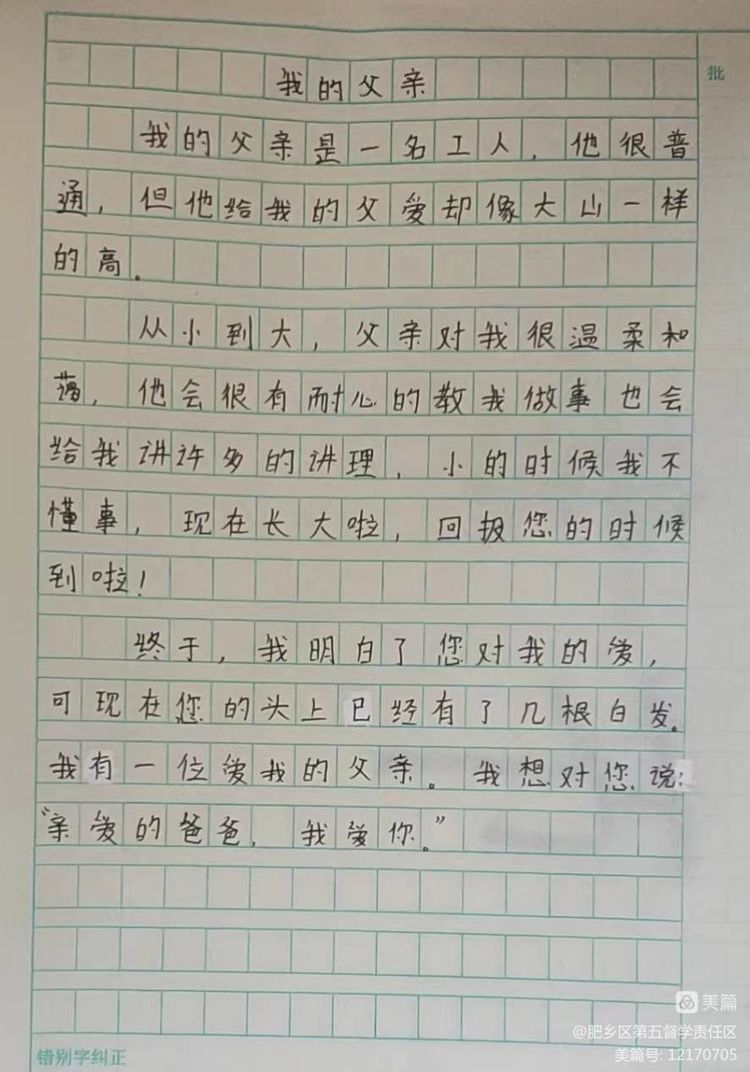 批
我的父亲
我的父亲是一名工人，他很普
通，但他给我的父爱却像大山一样
的高。
从小到大，父亲对我很温柔和
蔼，他会很有耐心的教我做事也会
给我讲许多的讲理，小的时候我不
懂事，现在长大啦，回报您的时候
到啦！
终于，我明白了您对我的爱，
可现在您的头上已经有了几根白发。
我有一位爱我的父亲。我想对您说：
“亲爱的爸爸，我爱你。”
错别字纠正
美篇
@肥乡区第五督学责任区
美篇号: 12170705